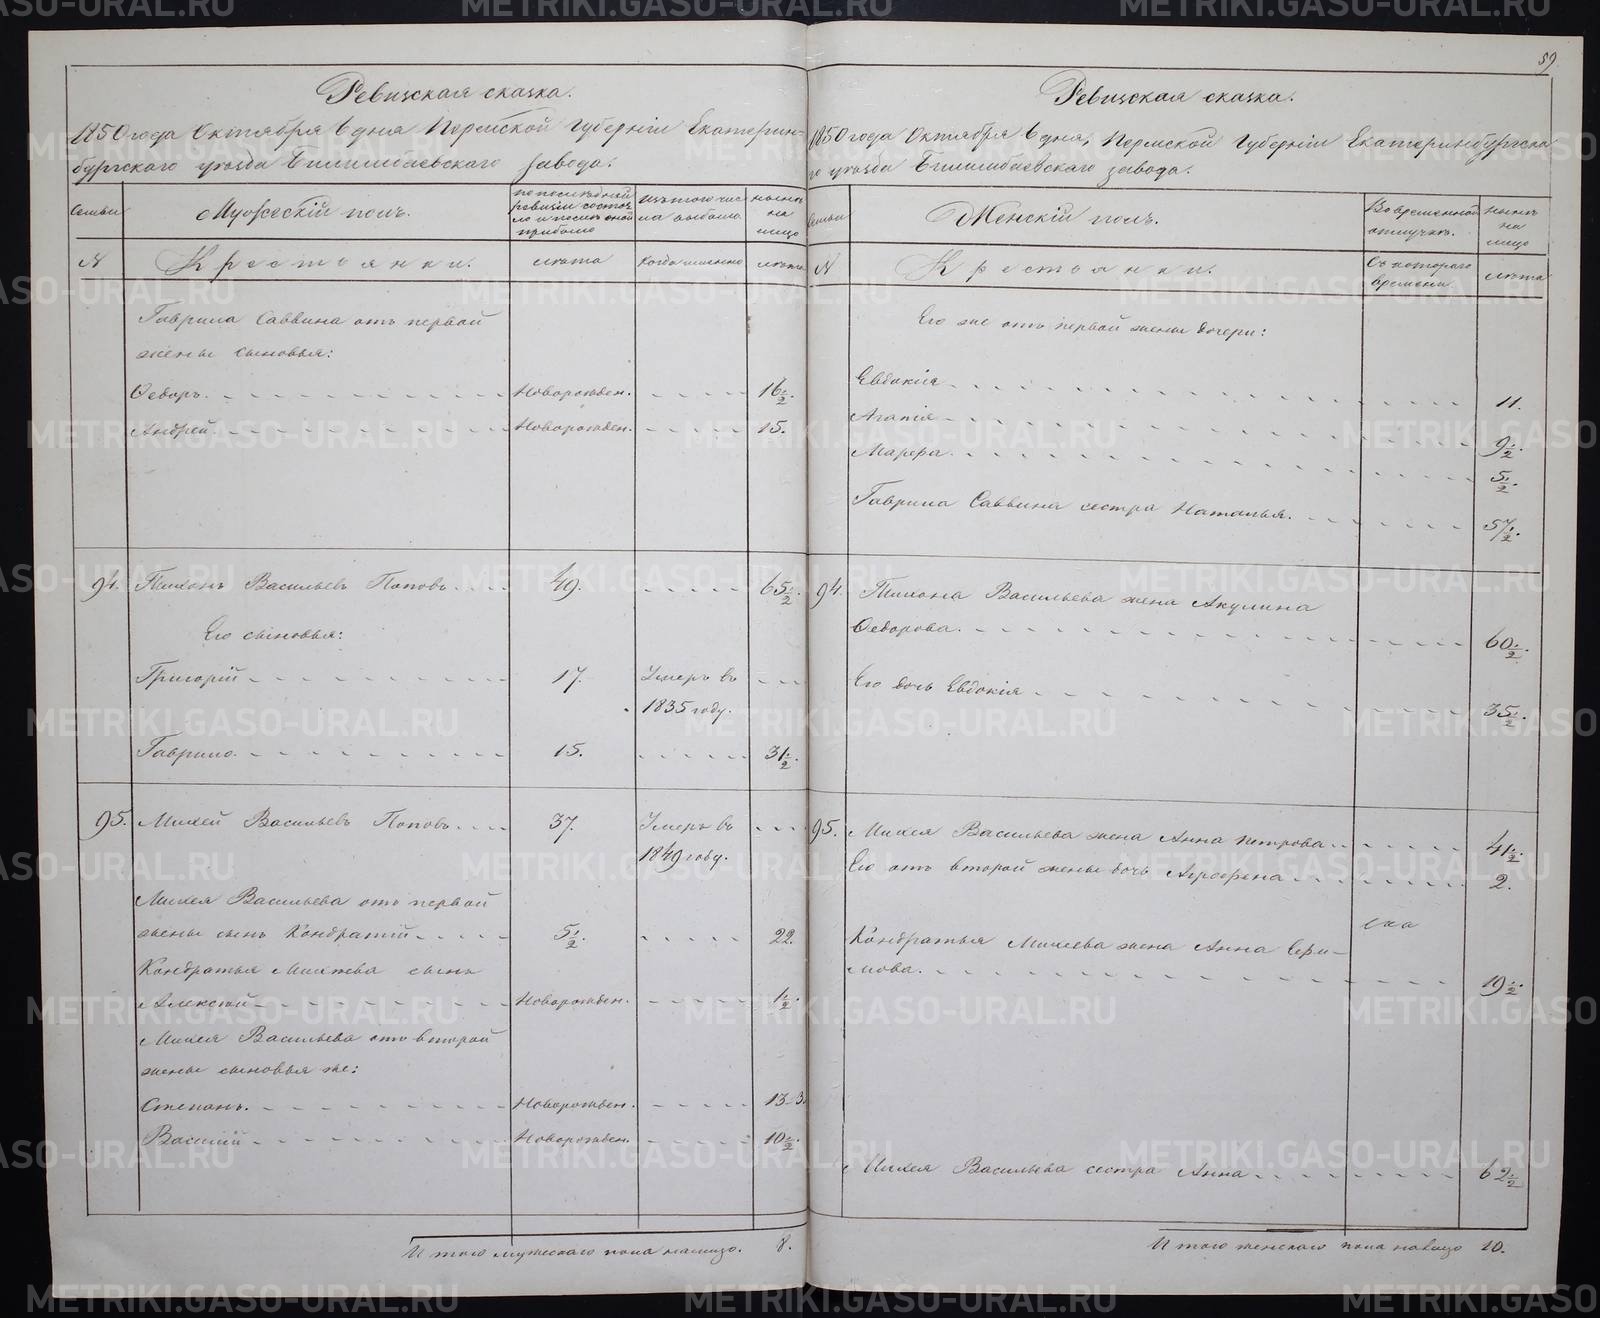 59
Ревизская сказка.
1850 года Октября 6 дня Пермской Губернiи Екатерин-
бургскаго уѣзда Билимбаевскаго завода.
Семьи
Мужескiй полъ.
по послѣдней
ревизiи состоя-
ло и послѣ оной
прибыло
изъ того чис-
ла выбыло
нынѣ
на
лицо
№
Крестьянки.
лѣта
когда именно
лѣта
Гаврила Саввина отъ первой
жены сыновья:
Ѳедоръ. Новорожден. 16 1/2.
Андрей. Новорожден. 15.
94. Тихонъ Васильевъ Поповъ. 49. 65 1/2
Его сыновья:
Григорiй 17. Умеръ въ
1835 году.
Гаврило. 15. 31 1/2.
95. Михей Васильевъ Поповъ. 37. Умеръ въ
1849 году.
Михея Васильева отъ первой
жены сынъ Кондратiй. 5 1/2. 22.
Кондратья Михѣева сынъ
Алексѣй Новорожден. 1 1/2.
Михея Васильева отъ второй
жены сыновья же:
Степанъ. Новорожден. 13
Василiй Новорожден. 10 1/2.
И того мужескаго пола налицо. 8.
Ревизская сказка.
1850 года Октября 6 дня, Пермской Губернiи Екатеринбургска-
го уѣзда Билимбаевскаго завода.
Семьи
Женскiй полъ.
Во временной
отлучкѣ.
нынѣ
на
лицо
№
Крестьянки.
Съ котораго
времени
лѣта
Его же отъ первой жены дочери:
Евдокiя 11.
Агапiя 9 1/2.
Марфа. 5 1/2.
Гаврила Саввина сестра Наталья. 57 1/2
94. Тихона Васильева жена Акулина
Ѳедорова. 60 1/2.
Его дочь Евдокiя 35 1/2.
95. Михея Васильева жена Анна Петрова 41 1/2
Его отъ второй жены дочь Агрофена 2.
Кондратья Михеева жена Анна Ефи-
мова. 19 1/2.
Михея Васильева сестра Анна 62 1/2
И того женскаго пола налицо 10.
METRIKI.GASO-URAL.RU